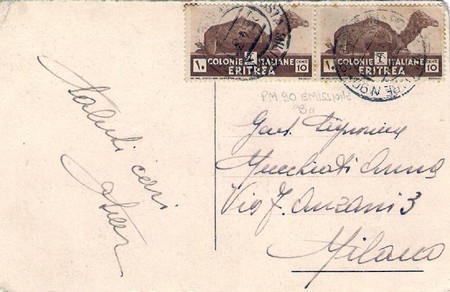 COLONIE ITALIANE
10 CENT 10
ERITREA
COLONIE ITALIANE
10 CENT 10
ERITREA
PM 90 EMISSIONE
"B"
Saluti cari
Gent. Signorina
Mucchiati Anna
Via F. Anzani 3
Milano